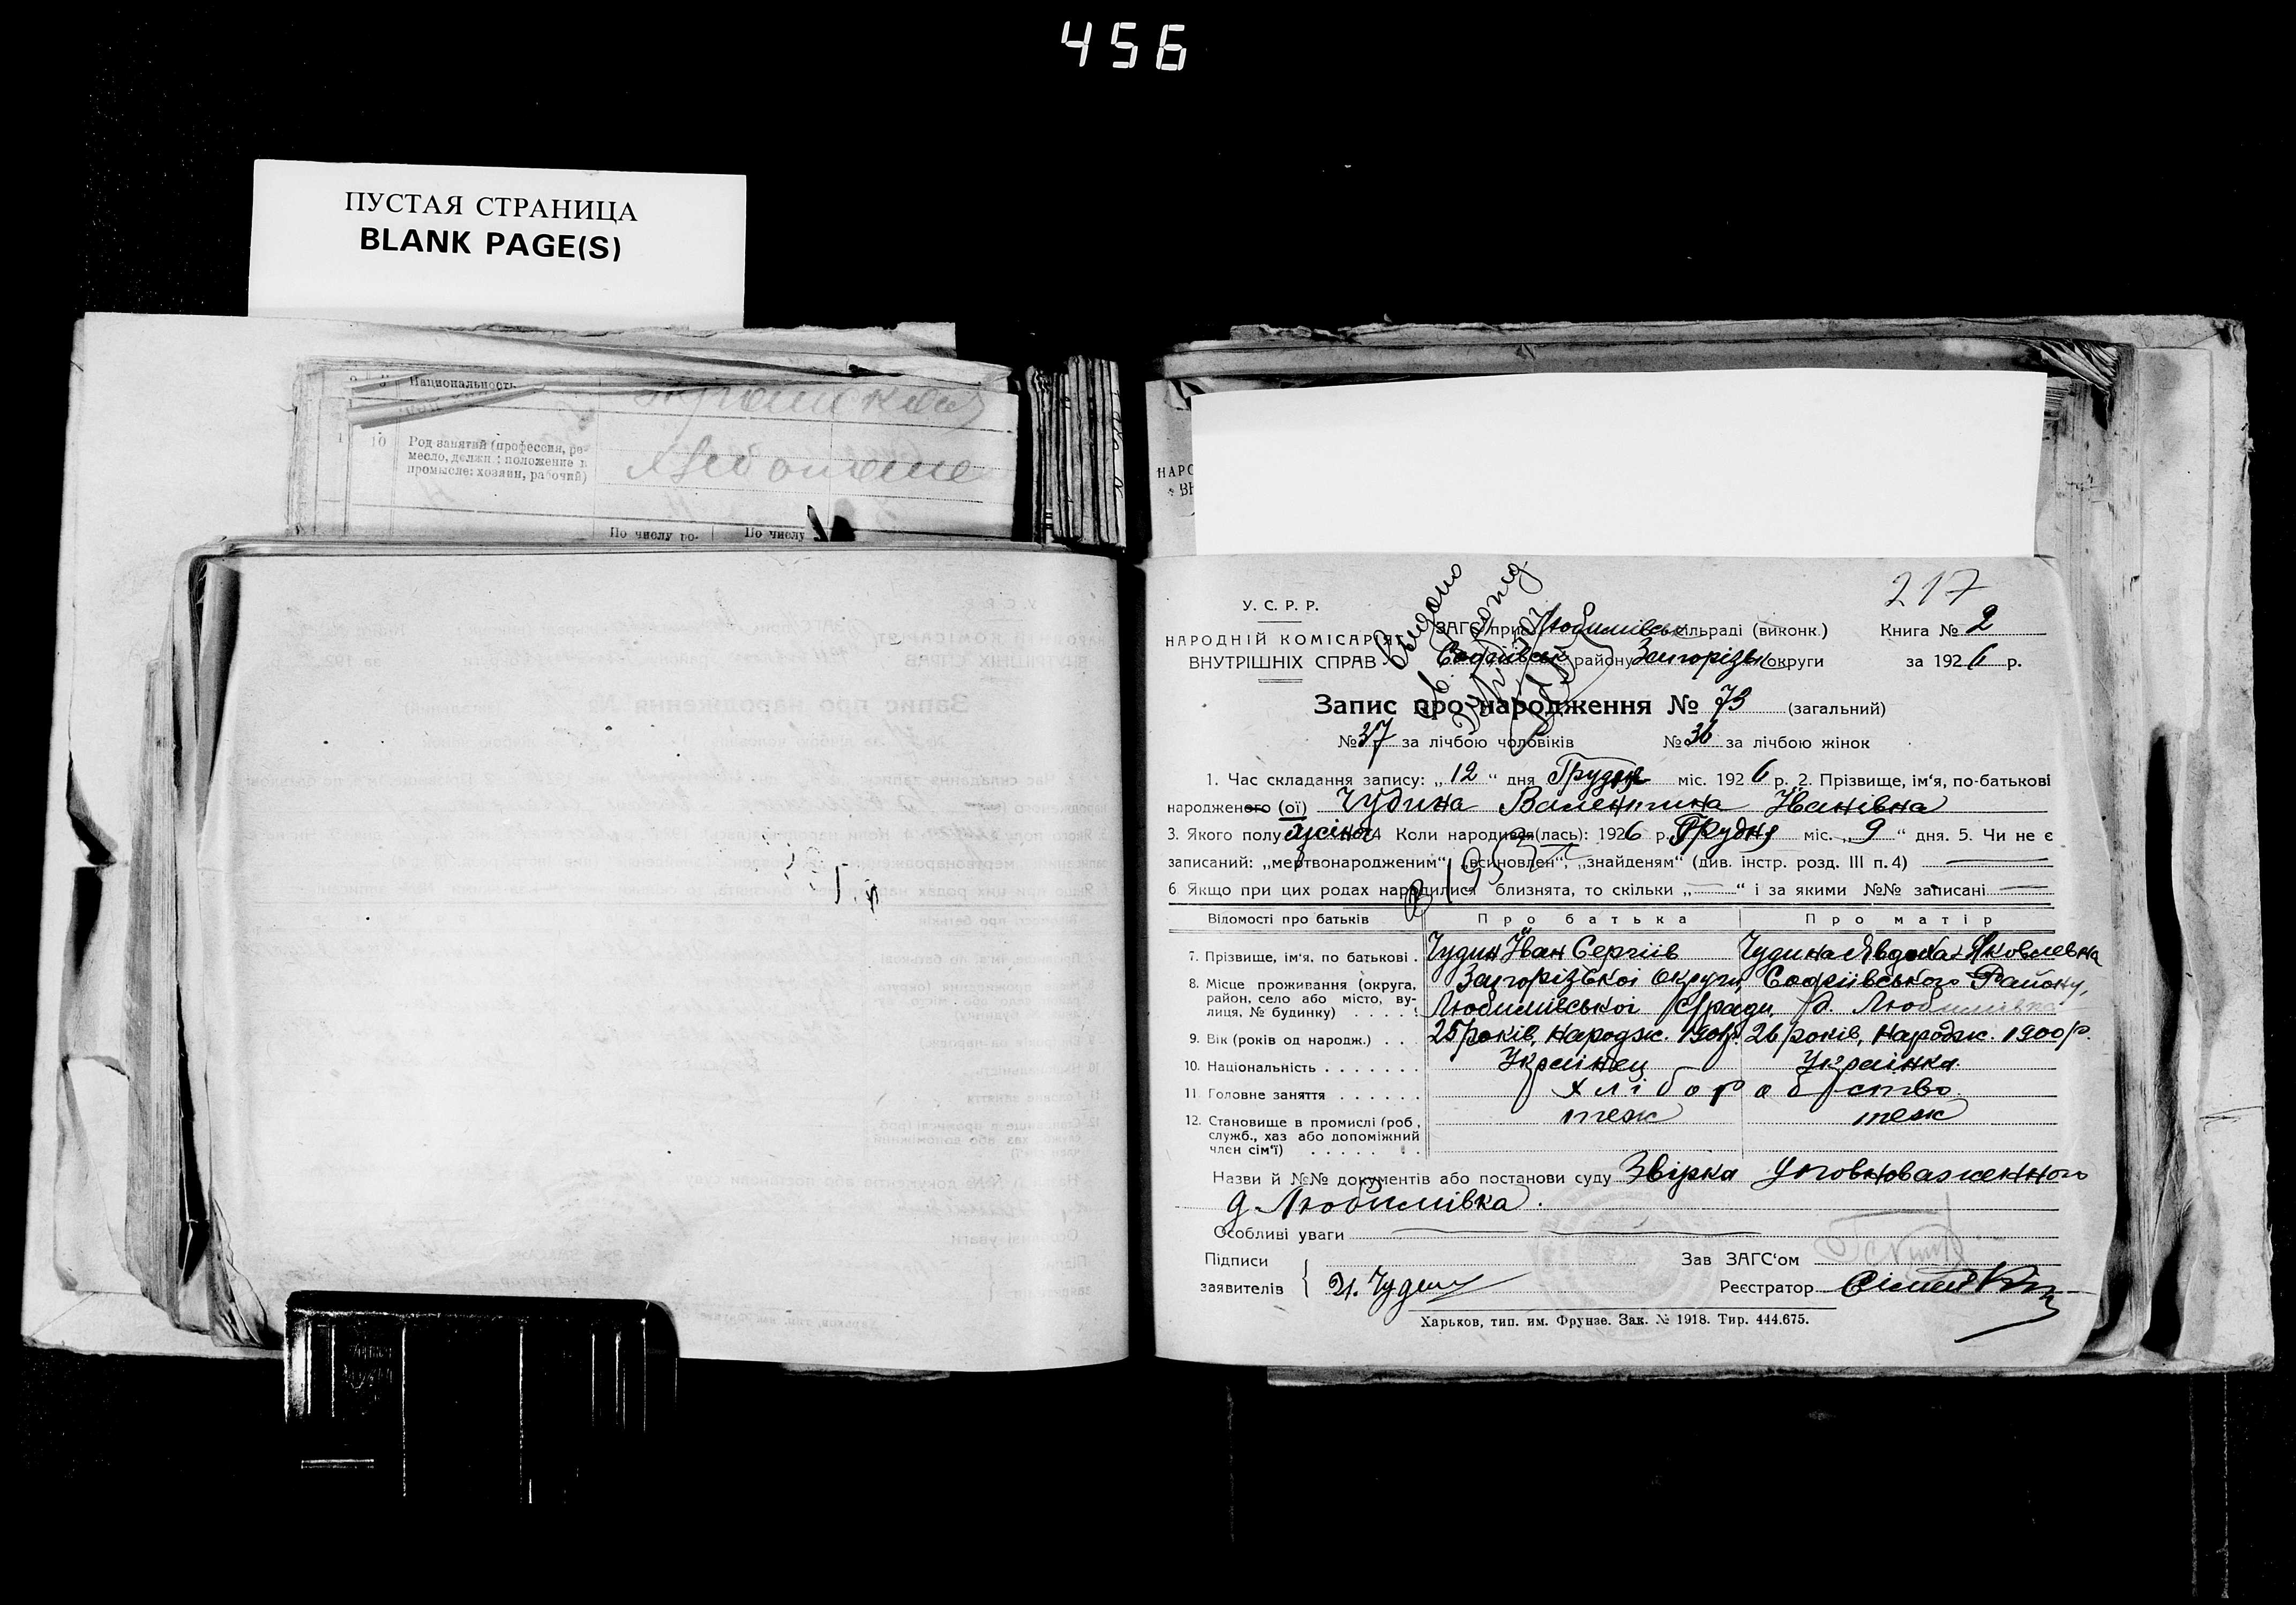 456
ПУСТАЯ СТРАНИЦА
BLANK PAGE(S)
Национальность
10 Род занятий (профессия, ре-
месло, должн; положение в
промысле: хозяин, рабочий)
По числу ро- По числу
НАРО
ВН
217
У. С. Р. Р.
НАРОДНІЙ КОМІСАРІЯТ
ВНУТРІШНІХ СПРАВ
ЗАГС при Любимівськ сільраді (виконк.)
Софіївськ району Запорізьк округи
Книга № 2
за 1926 р.
Запис про народження № 73 (загальний)
№ 37 за лічбою чоловіків № 36 за лічбою жінок
1. Час складання запису: „12“ дня Грудня міс. 1926 р. 2. Прізвище, ім'я, по-батькові
народженого (ої) Чудина Валентина Іванівна
3. Якого полу жіноч 4 Коли народився (лась): 1926 р. Грудня міс. „9“ дня. 5. Чи не є
записаний: „мертвонародженим“ „всиновлен“, „знайденям“ (див. інстр. розд. III п. 4)
6. Якщо при цих родах народилися близнята, то скільки „—“ і за якими №№ записані —
Відомості про батьків Про батька Про матір
7. Прізвище, ім'я, по батькові . Чудин Іван Сергіів Чудина Явдоха Яковлевна
8. Місце проживання (округа, Запорізької округи, Софіївського Району,
район, село або місто, ву- Любимівської с/ради, д. Любимівка
лиця, № будинку) . . . .
9. Вік (років од народж.) . . . 25 років, народж. 1901р. 26 років, народж. 1900р.
10. Національність . . . . . . . Українец Українка
11. Головне заняття . . . . . . хліборобство
12. Становище в промислі (роб., теж теж
служб., хаз або допоміжний
член сім'ї) . . . . . . .
Назви й №№ документів або постанови суду Звірка уповноваженного
д. Любимівка.
Особливі уваги
Підписи
заявителів { И. Чудин
Зав ЗАГС'ом
Реєстратор
Харьков, тип. им. Фрунзе. Зак. № 1918. Тир. 444.675.